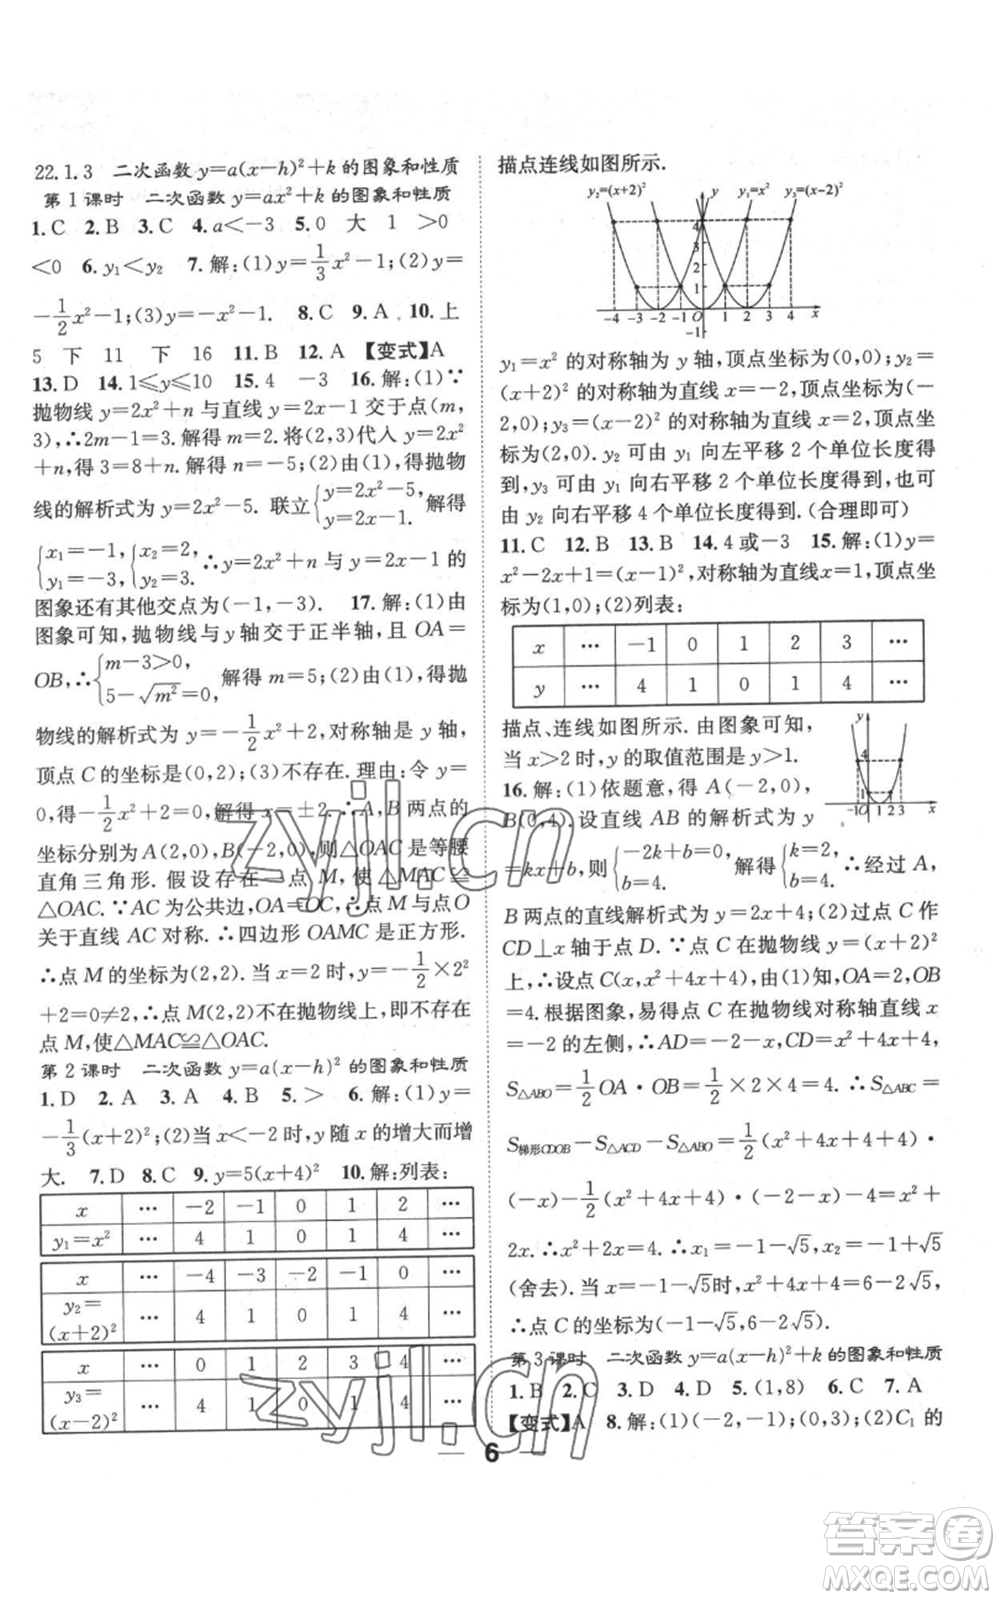 22.1.3 二次函数 y=a(x-h)²+k 的图象和性质
第 1 课时 二次函数 y=ax²+k 的图象和性质
1. C 2. B 3. C 4. a<-3 5. 0 大 1 >0
<0 6. y₁<y₂ 7. 解:(1)y=1/3x²-1;(2)y=
-1/2x²-1;(3)y=-x²-1. 8. C 9. A 10. 上
5 下 11 下 16 11. B 12. A 【变式】A
13. D 14. 1≤y≤10 15. 4 -3 16. 解:(1)∵
抛物线 y=2x²+n 与直线 y=2x-1 交于点(m,
3),∴2m-1=3. 解得 m=2. 将(2,3)代入 y=2x²
+n,得 3=8+n. 解得 n=-5;(2)由(1)得抛物
线的解析式为 y=2x²-5. 联立{y=2x²-5, y=2x-1. 解得
{x₁=-1, y₁=-3, {x₂=2, y₂=3. ∴y=2x²+n 与 y=2x-1 的
图象还有其他交点为(-1,-3). 17. 解:(1)由
图象可知,抛物线与 y 轴交于正半轴,且 OA=
OB,∴{m-3>0, 5-√m²=0, 解得 m=5;(2)由(1)得抛
物线的解析式为 y=-1/2x²+2,对称轴是 y 轴,
顶点 C 的坐标是(0,2);(3)不存在. 理由:令 y=
0,得-1/2x²+2=0,解得 x=±2. ∴A,B 两点的
坐标分别为 A(2,0),B(-2,0),则△OAC 是等腰
直角三角形. 假设存在一点 M,使△MAC≌
△OAC. ∵AC 为公共边,OA=OC,∴点 M 与点O
关于直线 AC 对称. ∴四边形 OAMC 是正方形.
∴点 M 的坐标为(2,2). 当 x=2 时,y=-1/2×2²
+2=0≠2,∴点 M(2,2)不在抛物线上,即不存在
点 M,使△MAC≌△OAC.
第 2 课时 二次函数 y=a(x-h)² 的图象和性质
1. D 2. A 3. A 4. B 5. > 6. 解:(1)y=
-1/3(x+2)²;(2)当 x<-2 时,y 随 x 的增大而增
大. 7. D 8. C 9. y=5(x+4)² 10. 解:列表:
x … -2 -1 0 1 2 …
y₁=x² … 4 1 0 1 4 …
x … -4 -3 -2 -1 0 …
y₂=(x+2)² … 4 1 0 1 4 …
x … 0 1 2 3 4 …
y₃=(x-2)² … 4 1 0 1 4 …
描点连线如图所示.
y₂=(x+2)² y y₁=x² y₃=(x-2)²
4 3 2 1
-4 -3 -2 -1 O 1 2 3 4 x
-1
y₁=x² 的对称轴为 y 轴,顶点坐标为(0,0);y₂=
(x+2)² 的对称轴为直线 x=-2,顶点坐标为(-
2,0);y₃=(x-2)² 的对称轴为直线 x=2,顶点坐
标为(2,0). y₂ 可由 y₁ 向左平移 2 个单位长度得
到,y₃ 可由 y₁ 向右平移 2 个单位长度得到,也可
由 y₂ 向右平移 4 个单位长度得到. (合理即可)
11. C 12. B 13. B 14. 4 或-3 15. 解:(1)y=
x²-2x+1=(x-1)²,对称轴为直线x=1,顶点坐
标为(1,0);(2)列表:
x … -1 0 1 2 3 …
y … 4 1 0 1 4 …
描点、连线如图所示. 由图象可知,
当 x>2 时,y 的取值范围是 y>1.
y
4
1
-1O 1 2 3 x
16. 解:(1)依题意,得 A(-2,0),
B(0,4). 设直线 AB 的解析式为 y
=kx+b,则{-2k+b=0, b=4. 解得{k=2, b=4. ∴经过 A,
B 两点的直线解析式为 y=2x+4;(2)过点 C 作
CD⊥x 轴于点 D. ∵点 C 在抛物线 y=(x+2)²
上,∴设点 C(x,x²+4x+4). 由(1)知,OA=2,OB
=4. 根据图象,易得点 C 在抛物线对称轴直线 x=
-2 的左侧,∴AD=-2-x,CD=x²+4x+4.
S△ABO=1/2OA·OB=1/2×2×4=4. ∴S△ABC=
S梯形CDOB-S△ACD-S△ABO=1/2(x²+4x+4+4)·
(-x)-1/2(x²+4x+4)·(-2-x)-4=x²+
2x. ∴x²+2x=4. ∴x₁=-1-√5,x₂=-1+√5
(舍去). 当 x=-1-√5时,x²+4x+4=6-2√5.
∴点 C 的坐标为(-1-√5,6-2√5).
第 3 课时 二次函数 y=a(x-h)²+k 的图象和性质
1. B 2. C 3. C 4. D 5. (1,8) 6. C 7. A
【变式】A 8. 解:(1)(-2,-1);(0,3);(2)C₁ 的
6
zyjl.cn
zyjl.cn
答案圈
MXQE.COM